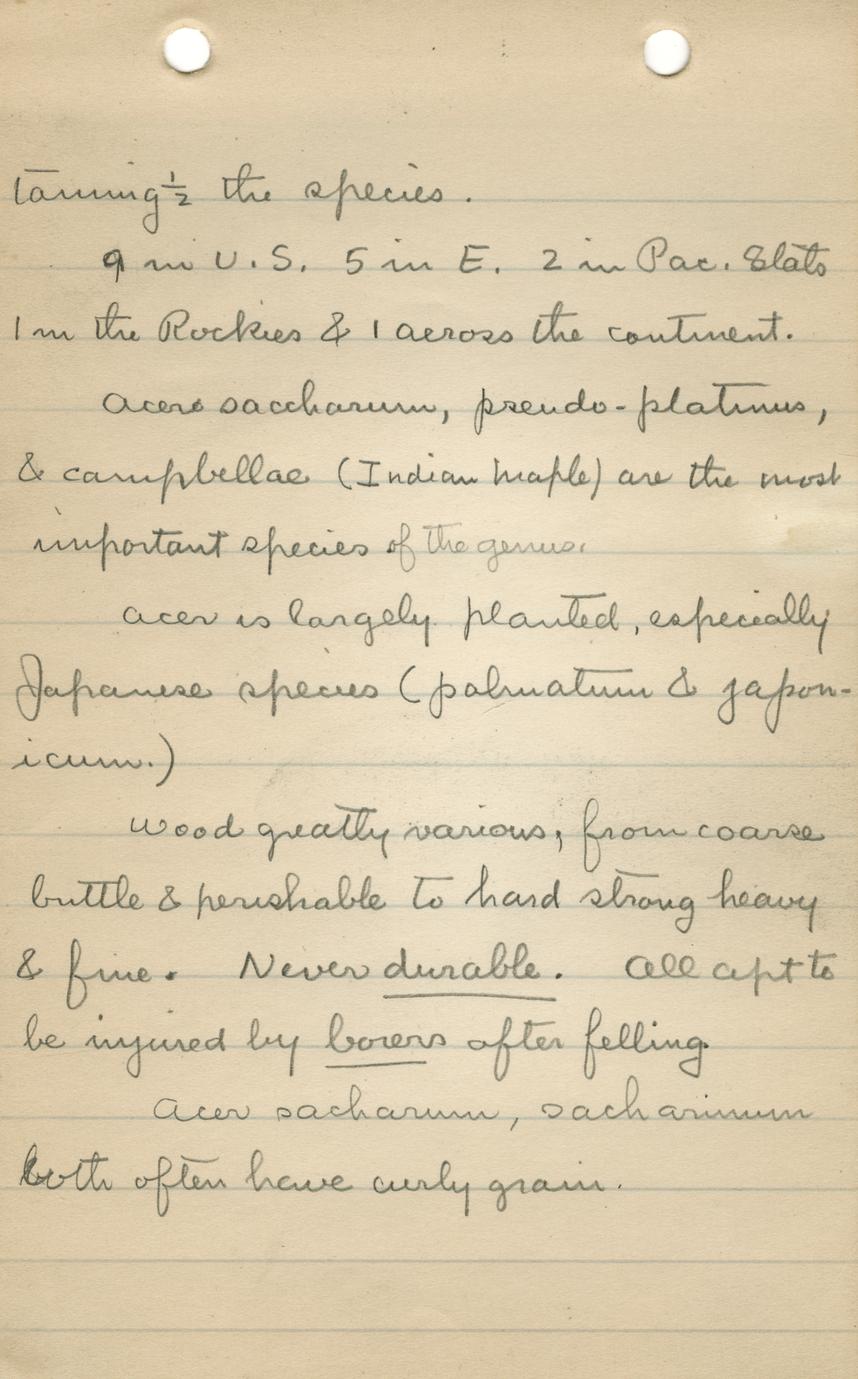 taining ½ the species.
9 in U.S. 5 in E. 2 in Pac. States
1 in the Rockies & 1 across the continent.
Acero saccharum, pseudo-platinus,
& campbellae (Indian Maple) are the most
important species of the genus.
Acer is largely planted, especially
Japanese species (palmatum & japon-
icum.)
Wood greatly various, from coarse
brittle & perishable to hard strong heavy
& fine. Never durable. All apt to
be injured by borers after felling.
Acer sacharum, sacharinum
both often have curly grain.